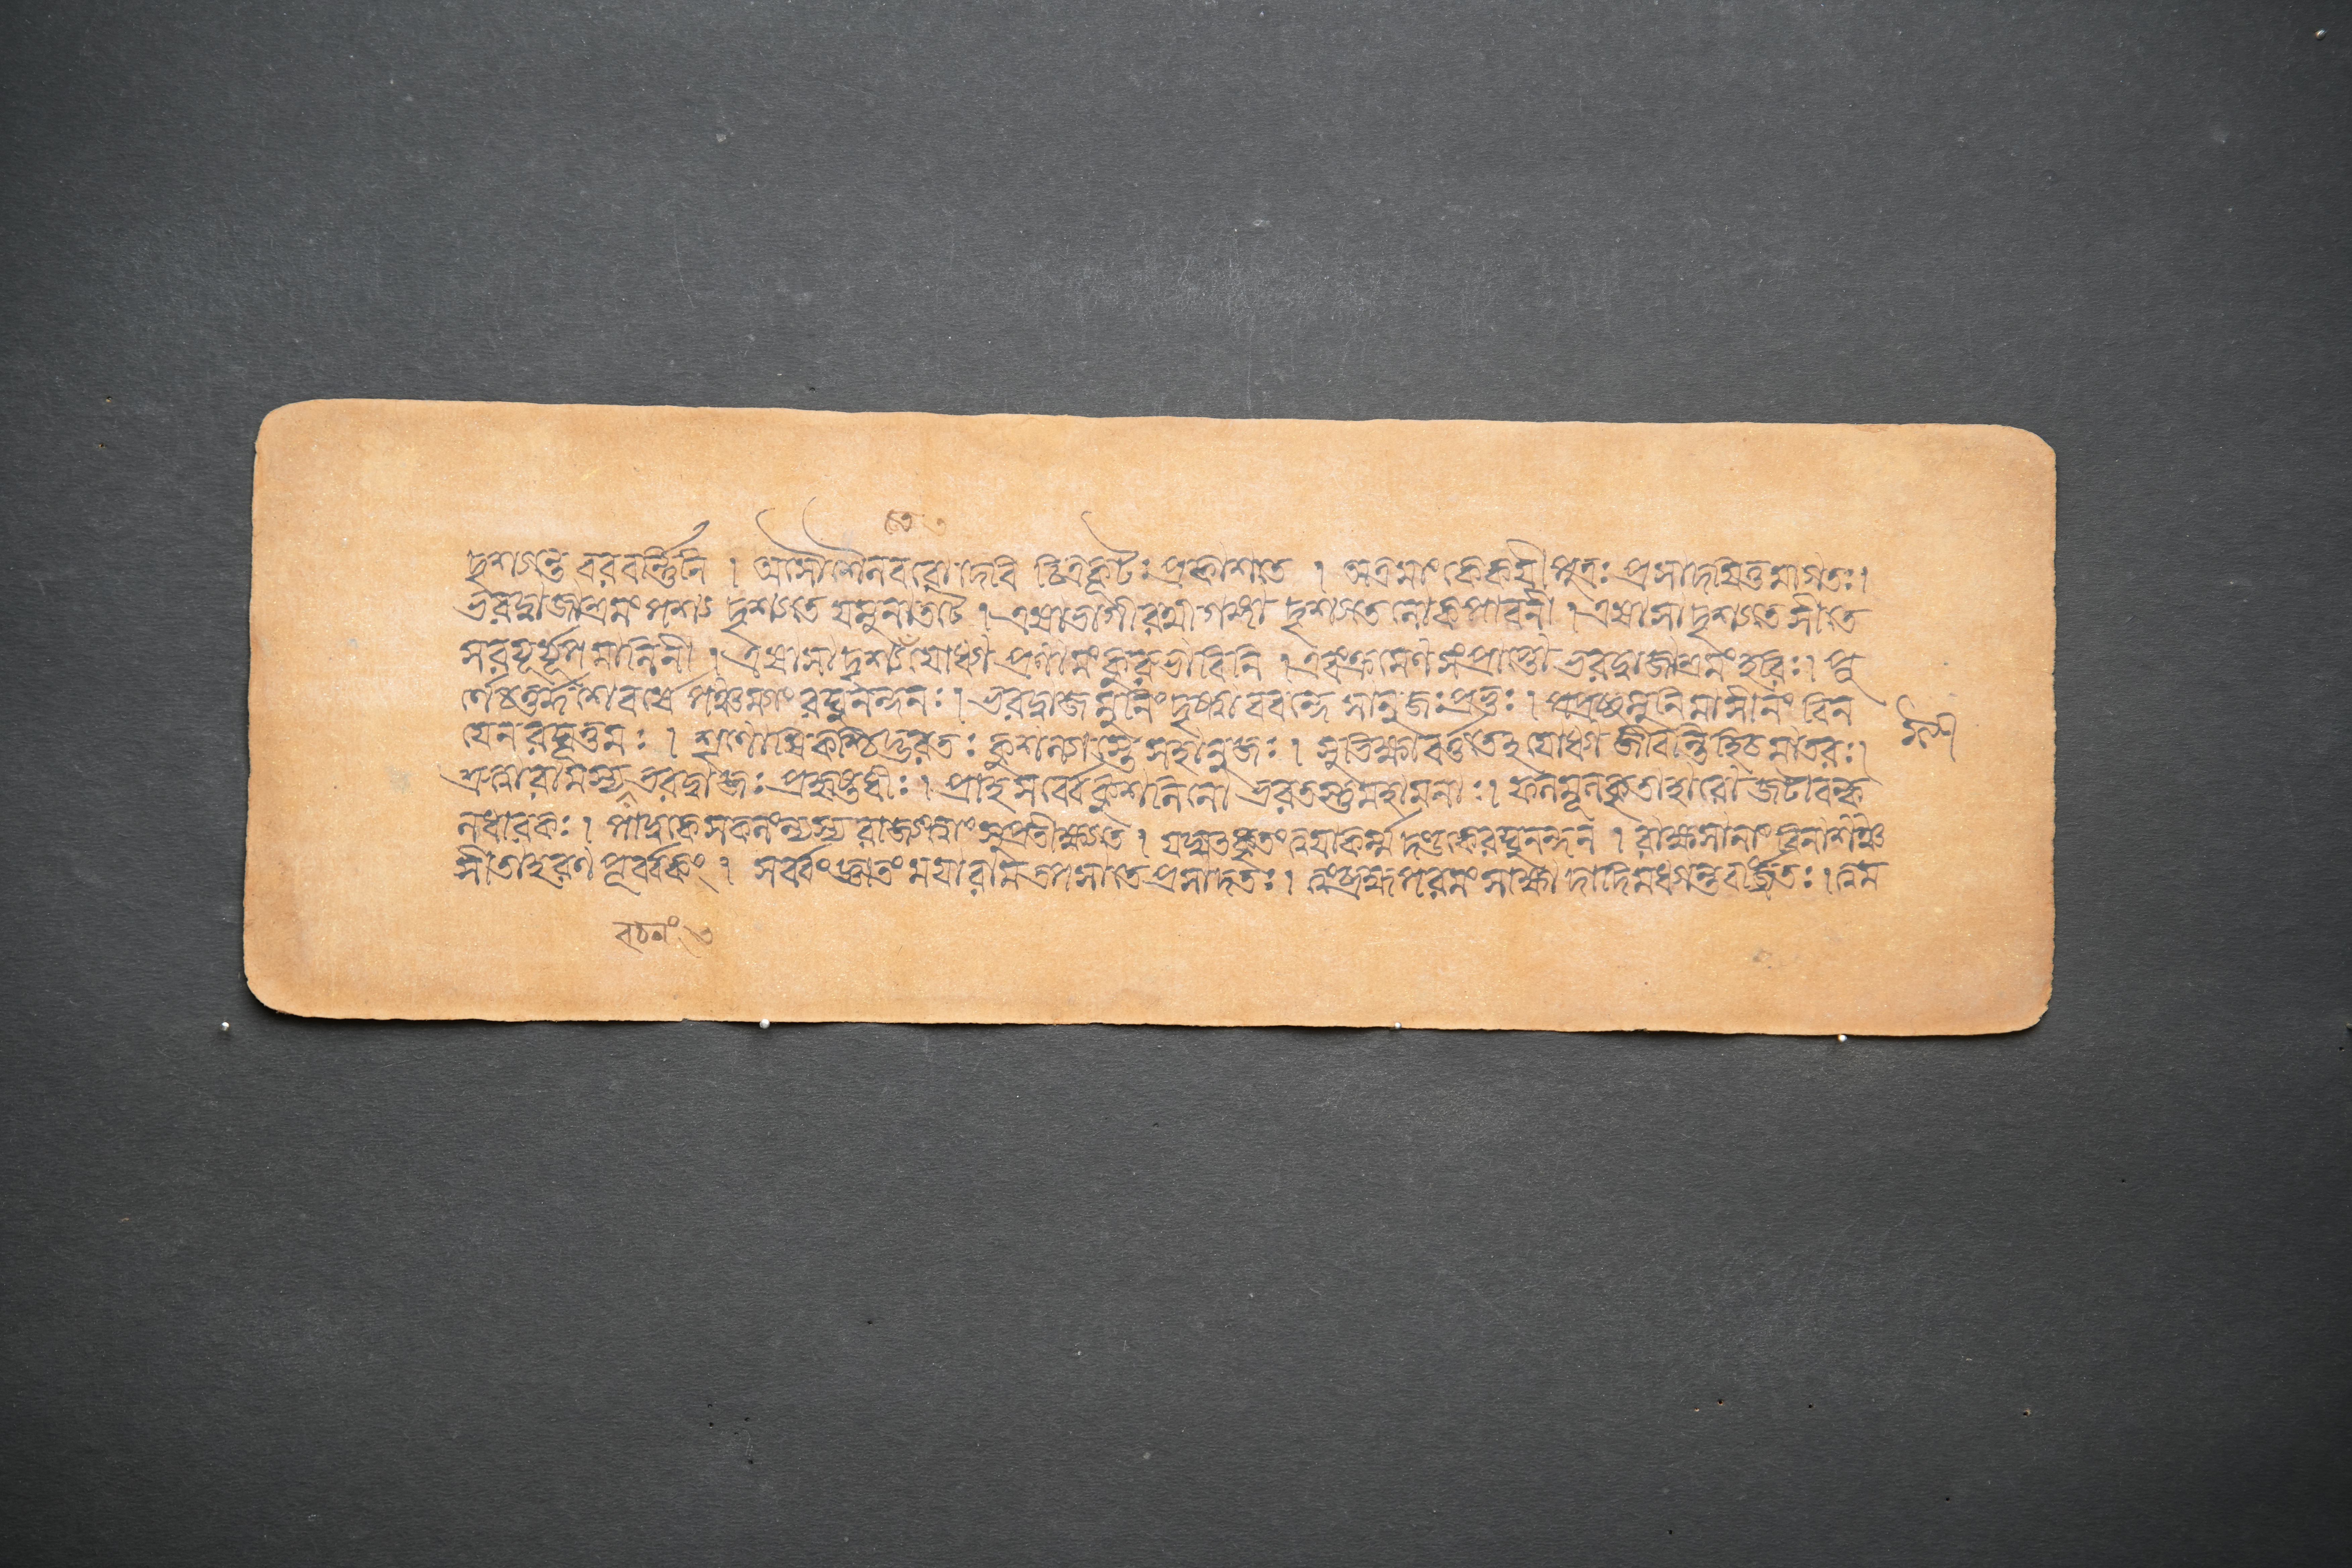 তে ৩
দৃশ্যন্তে বরবর্ণ্ণিনি । অসৌ শৈলবরো দেবি চিত্রকূটঃ প্রকাশতে । অত্র মাং কৈকয়ীপুত্রঃ প্রসাদয়িতুমাগতঃ।
ভরদ্বাজাশ্রমং পশ্য দৃশ্যতে যমুনাতটে । এষা ভাগীরথী গঙ্গা দৃশ্যতে লোকপাবনী । এষা সা দৃশ্যতে সীতে
সরযূর্যূপমালিনী । এষা সা দৃশ্যতেঽযোধ্যা প্রণামং কুরু ভাবিনি । এবং ক্রমেণ সংপ্রাপ্তো ভরদ্বাজাশ্রমং হরিঃ। পূ
র্ণে চতুর্দ্দশে বর্ষে পঞ্চম্যাং রঘুনন্দনঃ । ভরদ্বাজং মুনিং দৃষ্ট্বা ববন্দে সানুজঃ প্রভুঃ । পপ্রচ্ছ মুনিমাসীনং বিন
যেন রঘূত্তমঃ । শৃণোষি কচ্চিদ্ভরতঃ কুশল্যাস্তে সহানুজঃ । সুভিক্ষা বর্ত্ততেঽযোধ্যা জীবন্তি হি চ মাতরঃ।
শ্রুত্বা রামস্য ভরদ্বাজঃ প্রহৃষ্টধীঃ । প্রাহ সর্ব্বে কুশলিনো ভরতস্তু মহামনাঃ। ফলমূলকৃতাহারো জটাবল্ক
লধারকঃ । পাদুকে সকলং ন্যস্য রাজ্যং ত্বাং সুপ্রতীক্ষ্যতে । যদ্যত্কৃতং ত্বয়া কর্ম্ম দণ্ডকে রঘুনন্দন । রাক্ষসানাং বিনাশঞ্চ
সীতাহরণপূর্ব্বকং । সর্ব্বং জ্ঞাতং ময়া রাম তপসা তে প্রসাদতঃ। ত্বং ব্রহ্ম পরমং সাক্ষাদাদিমধ্যান্তবর্জ্জিতঃ। ত্বম
বচনং ৩